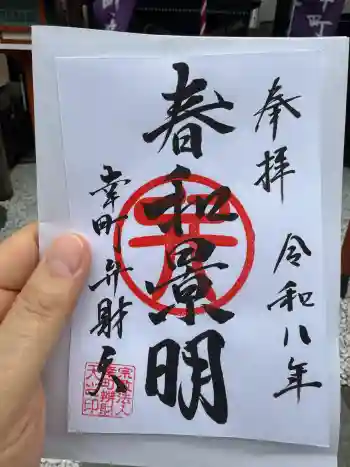 奉拝
令和八年
春和景明
幸町弁財天